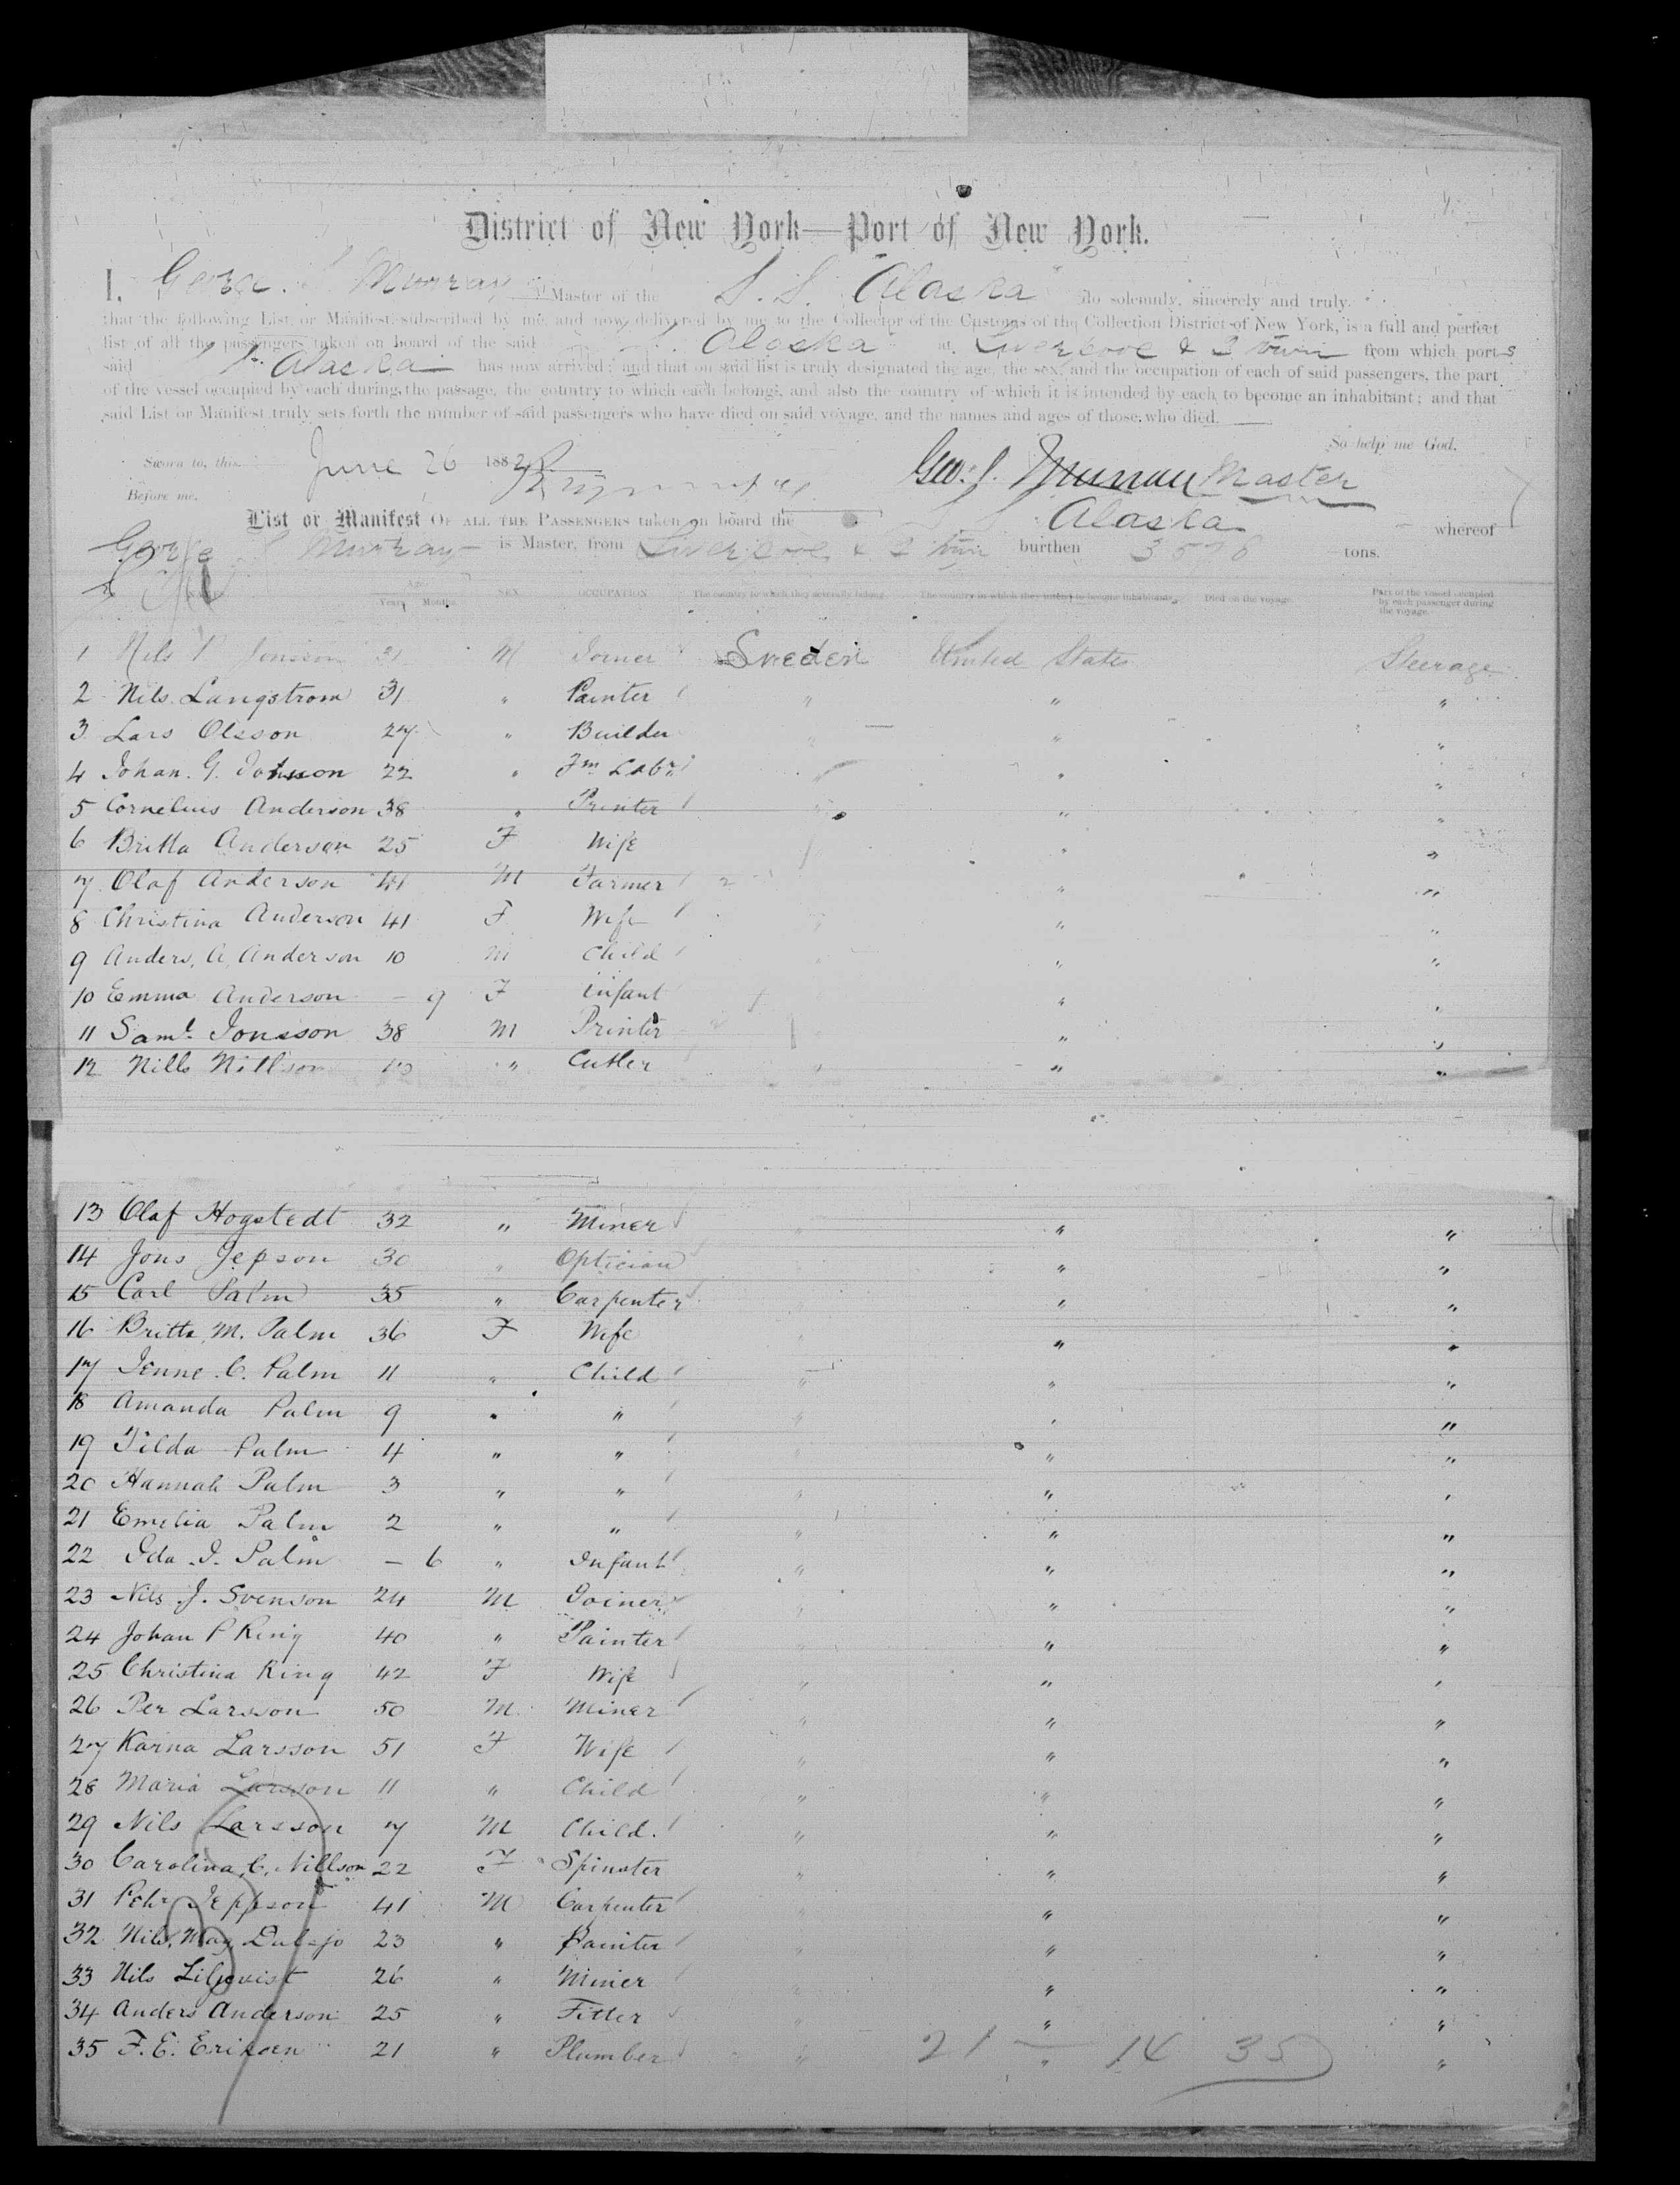 District of New York—Port of New York.
I, George S. Murray Master of the S. S. Alaska do solemnly, sincerely and truly
that the following List or Manifest, subscribed by me, and now delivered by me to the Collector of the Customs of the Collection District of New York, is a full and perfect
list of all the passengers taken on board of the said S. S. Alaska at Liverpool & Q town from which ports
said S. S. Alaska has now arrived; and that on said list is truly designated the age, the sex, and the occupation of each of said passengers, the part
of the vessel occupied by each during the passage, the country to which each belongs, and also the country of which it is intended by each to become an inhabitant; and that
said List or Manifest truly sets forth the number of said passengers who have died on said voyage, and the names and ages of those who died.
So help me God.
Sworn to, this June 26 1882
Geo. S. Murray Master
Before me,
List or Manifest OF ALL THE PASSENGERS taken on board the S S Alaska whereof
George S Murray is Master, from Liverpool & Q town burthen 3578 tons.
Age. Years Months SEX. OCCUPATION The country to which they severally belong. The country in which they intend to become inhabitants. Died on the voyage. Part of the vessel occupied by each passenger during the voyage.
1 Nils P Jonsson 31 M Joiner Sweden United States Steerage
2 Nils Langstrom 31 " Painter " " "
3 Lars Olsson 27 " Builder " " "
4 Johan. G. Johnson 22 " Fm Labr " " "
5 Cornelius Anderson 38 " Printer " " "
6 Britta Anderson 25 F Wife " " "
7 Olaf Anderson 41 M Farmer " " "
8 Christina Anderson 41 F Wife " " "
9 Anders, A, Anderson 10 M Child " " "
10 Emma Anderson — 9 F Infant " " "
11 Saml. Jonsson 38 M Printer " " "
12 Nills Nillson " Cutler " " "
13 Olaf Hogstedt 32 " Miner " " "
14 Jons Jepson 30 " Optician " " "
15 Carl Palm 35 " Carpenter " " "
16 Britta M. Palm 36 F Wife " " "
17 Jenne C. Palm 11 " Child " " "
18 Amanda Palm 9 " " " " "
19 Tilda Palm 4 " " " " "
20 Hannah Palm 3 " " " " "
21 Emelia Palm 2 " " " " "
22 Ida I. Palm — 6 " Infant " " "
23 Nils J. Svenson 24 M Joiner " " "
24 Johan P King 40 " Painter " " "
25 Christina King 42 F Wife " " "
26 Per Larsson 50 M. Miner " " "
27 Karna Larsson 51 F Wife " " "
28 Maria Larsson 11 " Child " " "
29 Nils Larsson 7 M Child. " " "
30 Carolina C. Nillson 22 F Spinster " " "
31 Pehr Jeppson 41 M Carpenter " " "
32 Nils, Mag 23 " Painter " " "
33 Nils Liliqvist 26 " Miner " " "
34 Anders Anderson 25 " Fitter " " "
35 F. E. Eriksen 21 " Plumber " " "
21 — 14 35